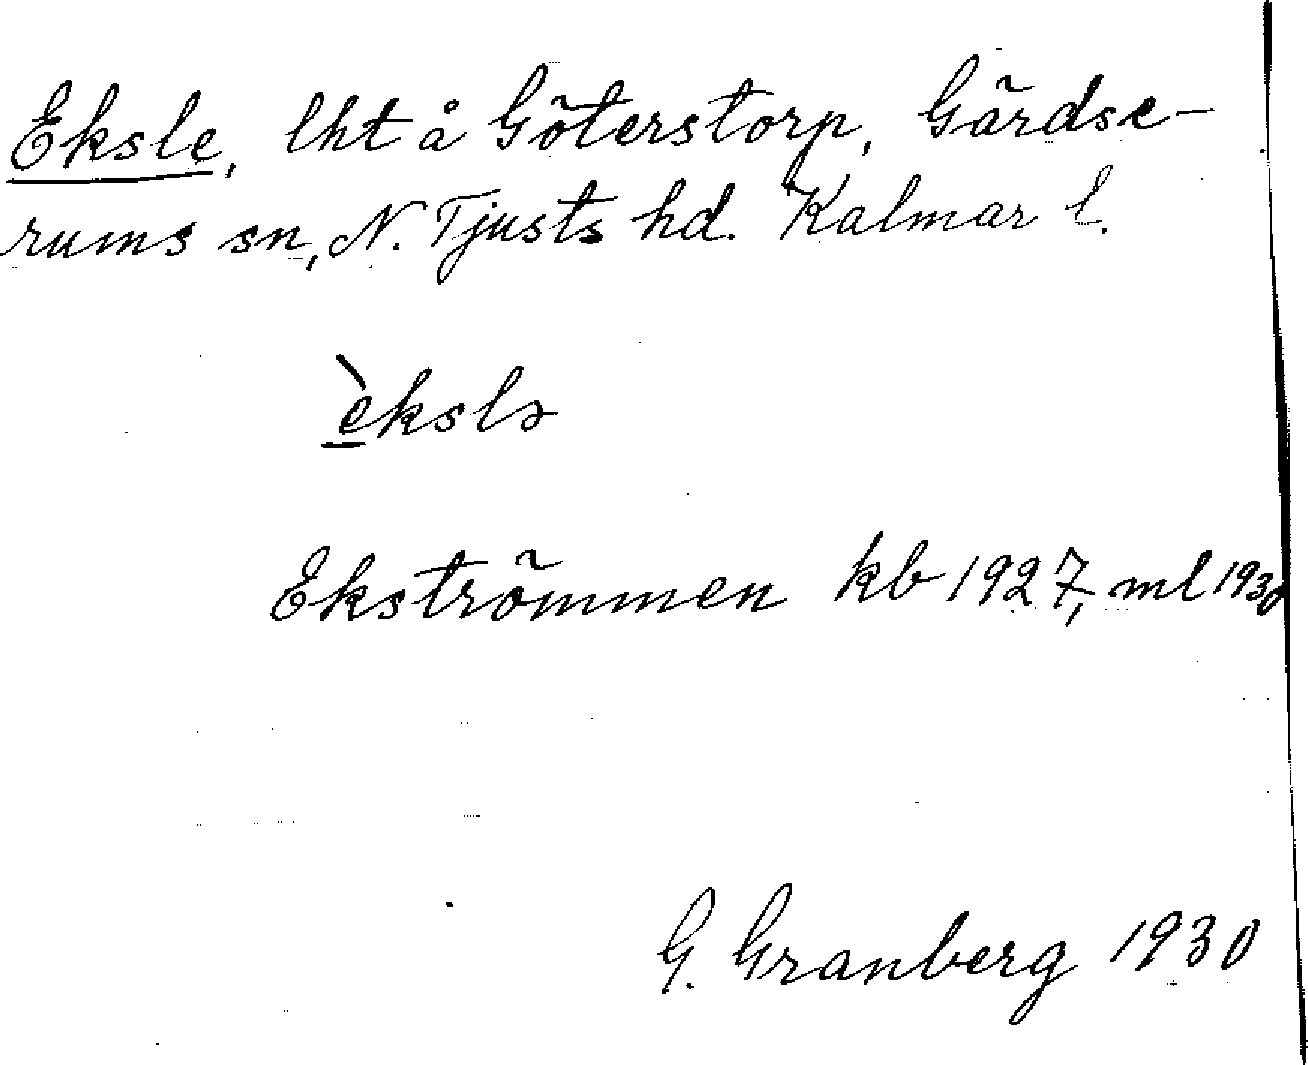 Eksle, lht å Göterstorp, Gärdse-
rums sn, N. Tjusts hd. Kalmar l.
èkslə
Ekströmmen kb 1927, ml 1930
G. Granberg 1930